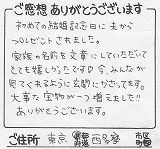 ご感想 ありがとうございます
初めての結婚記念日に夫から
プレゼントされました。
家族の名前を文章にしていただいて
とても嬉しかったです。今、みんなが
見てくれるように玄関にかざってます。
大事な宝物が1つ増えました!!
ありがとうございます。
ご住所 東京 都道府県 西多摩 市区町村